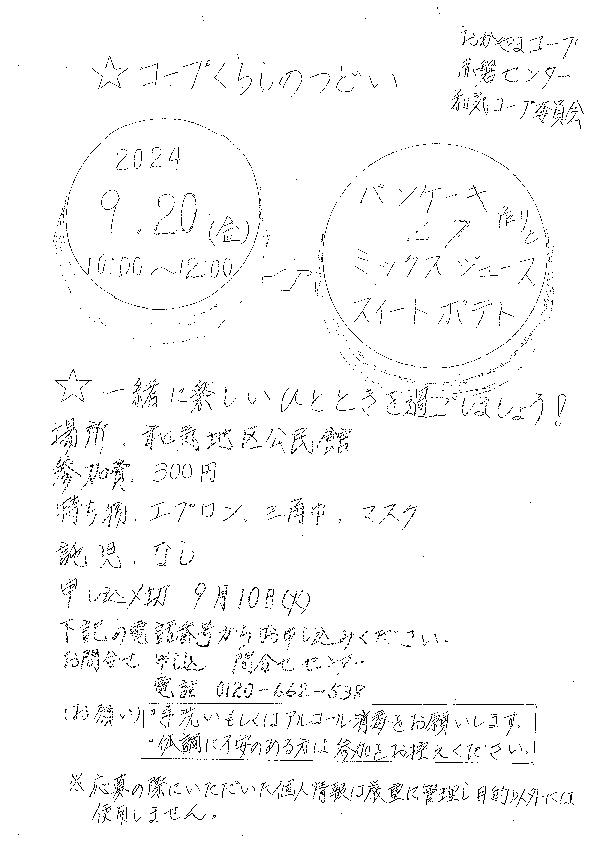 おかやまコープ
赤磐センター
和気コープ委員会
☆コープくらしのつどい
2024
9.20(金)
10:00～12:00
パンケーキ
作りと
ミックスジュース
スイートポテト
☆一緒に楽しいひとときを過ごしましょう！
場所、和気地区公民館
参加費、300円
持ち物、エプロン、三角巾、マスク
託児、なし
申し込〆切 9月10日(火)
下記の電話番号からお申し込みください。
お問合せ 申込 問合せセンター
電話 0120-662-538
(お願い)・手洗いもしくはアルコール消毒をお願いします。
・体調に不安のある方は参加をお控えください。
※応募の際にいただいた個人情報は厳重に管理し目的以外には
使用しません。